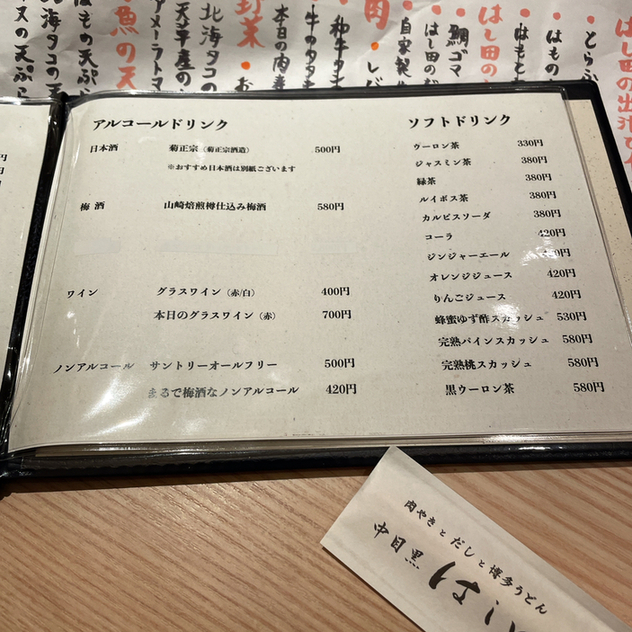 はし田の出汁
とらふ
はもの
はもと
はし田の
鯛ゴマ
はし田のだ
自家製
肉・レバ
和牛のネ
牛のタタキ
本日の肉
野菜・お
北海タコの
天草産の
アメーラトマ
魚の天
はもの天ぷら
北海タコの天
イスの天ぷら
アルコールドリンク
日本酒 菊正宗（菊正宗酒造） 500円
※おすすめ日本酒は別紙ございます
梅 酒 山崎焙煎樽仕込み梅酒 580円
ワイン グラスワイン（赤/白） 400円
本日のグラスワイン（赤） 700円
ノンアルコール サントリーオールフリー 500円
まるで梅酒なノンアルコール 420円
ソフトドリンク
ウーロン茶 330円
ジャスミン茶 380円
緑茶 380円
ルイボス茶 380円
カルピスソーダ 380円
コーラ 420円
ジンジャーエール 420円
オレンジジュース 420円
りんごジュース 420円
蜂蜜ゆず酢スカッシュ 530円
完熟パインスカッシュ 580円
完熟桃スカッシュ 580円
黒ウーロン茶 580円
肉やきとだしと博多うどん
中目黒
はし